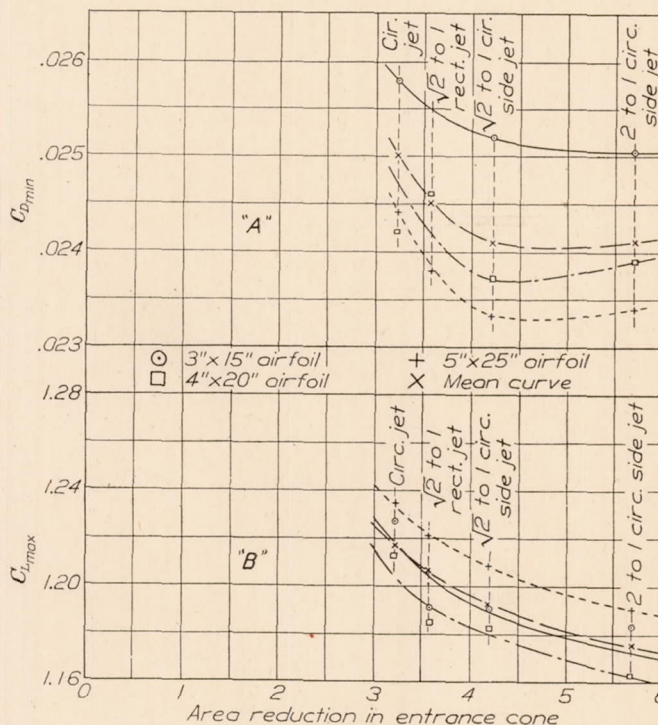 .026
.025
.024
.023
C_Dmin
"A"
Cir. jet
√2 to 1 rect. jet
√2 to 1 cir. side jet
2 to 1 circ. side jet
⊙ 3"x15" airfoil
+ 5"x25" airfoil
□ 4"x20" airfoil
× Mean curve
1.28
1.24
1.20
1.16
C_Lmax
"B"
Circ. jet
√2 to 1 rect. jet
√2 to 1 circ. side jet
2 to 1 circ. side jet
0 1 2 3 4 5 6
Area reduction in entrance cone